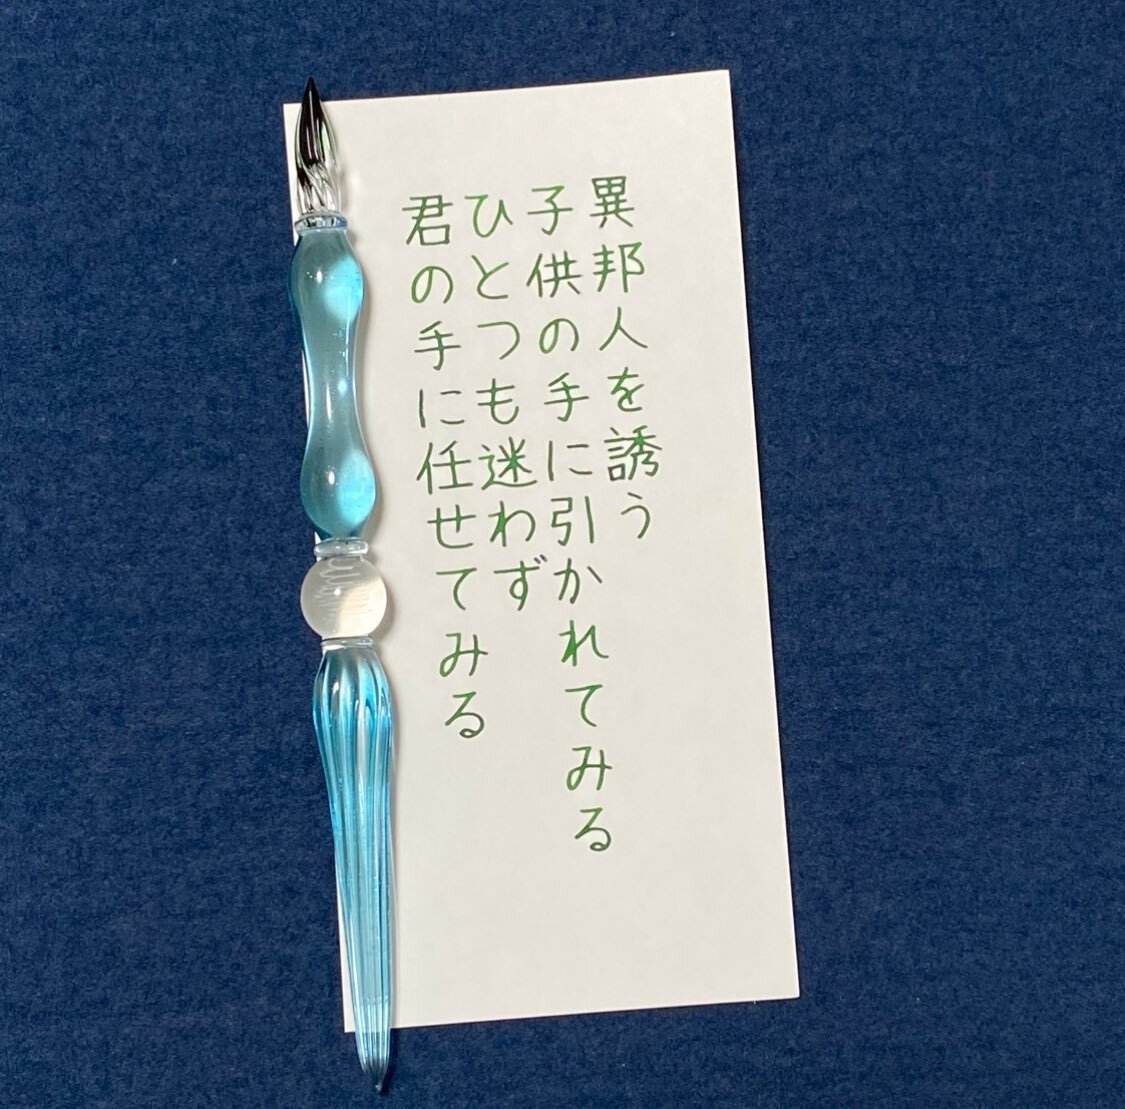 異邦人を誘う
子供の手に引かれてみる
ひとつも迷わず
君の手に任せてみる